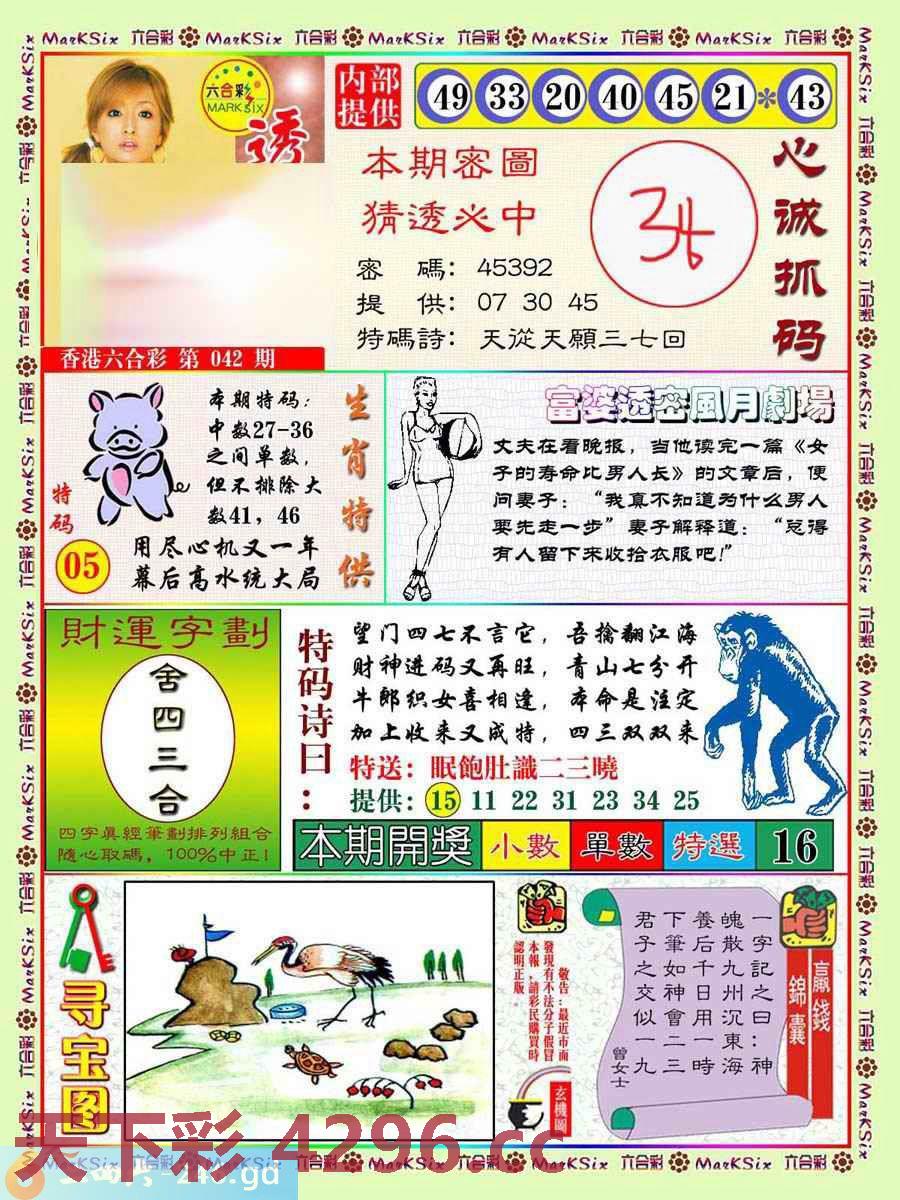 MarKSix 六合彩 MarKSix 六合彩 MarKSix 六合彩 MarKSix 六合彩 MarKSix 六合彩
六合彩
MARK Six
诱
内部
提供
49 33 20 40 45 21 * 43
本期密圖
猜透必中
密 碼：45392
提 供：07 30 45
特碼詩：天從天願三七回
心诚抓码
香港六合彩 第 042 期
本期特码：
中数27-36
之间单数，
但不排除大
数41，46
特码
05
用尽心机又一年
幕后高水统大局
生肖特供
富婆透密風月劇場
丈夫在看晚报，当他读完一篇《女
子的寿命比男人长》的文章后，便
问妻子：“我真不知道为什么男人
要先走一步”妻子解释道：“总得
有人留下来收拾衣服吧!”
財運字劃
舍四三合
四字真經筆劃排列組合
隨心取碼，100%中正!
特码诗曰：
望门四七不言它，吾擒翻江海
财神进码又再旺，青山七分开
牛郎织女喜相逢，本命是注定
加上收来又成特，四三双双来
特送：眠飽肚識二三曉
提供：15 11 22 31 23 34 25
本期開獎 小數 單數 特選 16
寻宝图
敬告：最近市面
發現有不法分子假冒
本報，請彩民購買時
認明正版。
玄機圖
贏錢
錦囊
一字記之曰：神
魄散九州沉東海
養后千日用一時
下筆如神會二三
君子之交似一九
曾女士
天下彩 4296.cc
MarKSix 六合彩 MarKSix 六合彩 MarKSix 六合彩